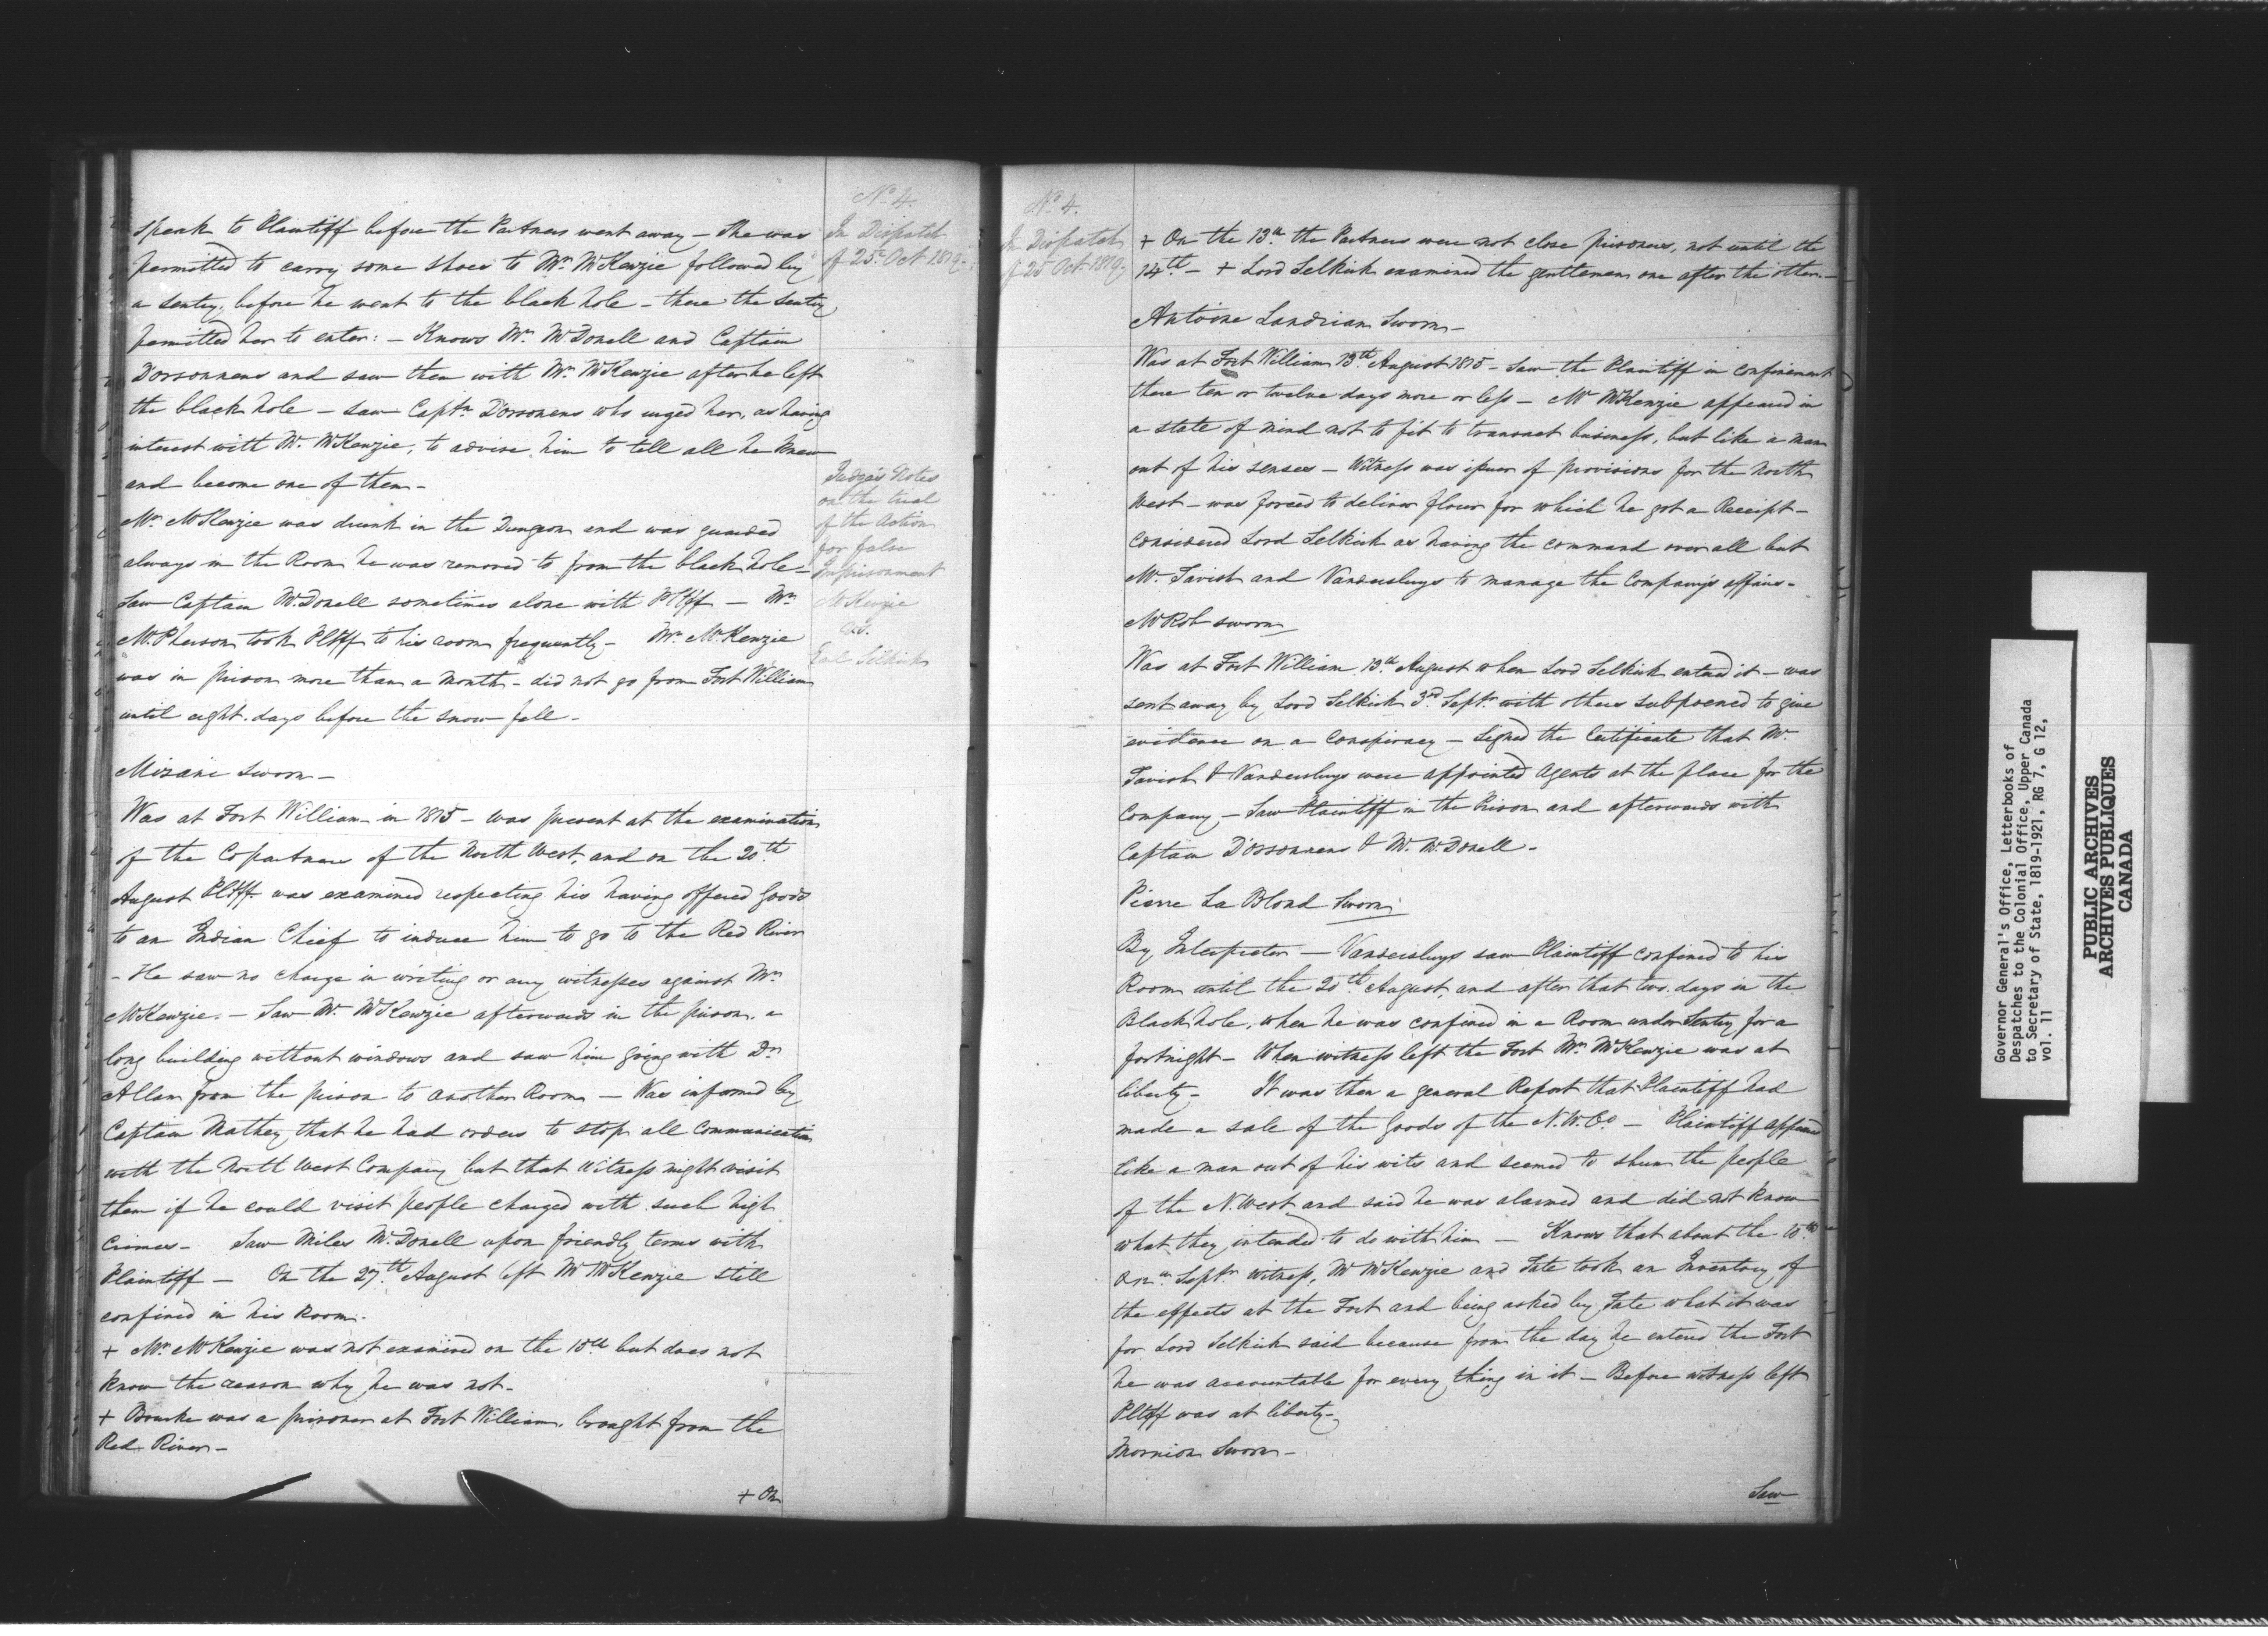 No. 4.
In Dispatch
of 25 Oct 1819.
speak to Plaintiff before the Partners went away – She was
permitted to carry some shoes to Mr. McKenzie followed by
a sentry, before he went to the black hole – there the sentry
permitted her to enter: – Knows Mr. McDonell and Captain
Dorsonnens and saw them with Mr. McKenzie after he left
the black hole – saw Captn. D'Orsonens who urged her, as having
interest with Mr. McKenzie, to advise him to tell all he knew
and become one of them –
Mr. McKenzie was drunk in the Dungeon and was guarded
always in the Room he was removed to from the black hole –
Saw Captain McDonell sometimes alone with Pltff – Mr.
McPherson took Pltff to his room frequently – Mr. McKenzie
was in prison more than a month – did not go from Fort William
until eight days before the snow fell –
Judge's Notes
on the trial
of the Action
for false
Imprisonment
McKenzie
vs.
Earl Selkirk
Mizani Sworn –
Was at Fort William in 1815 – was present at the examination
of the Copartners of the North West, and on the 20th
August Pltff was examined respecting his having offered Goods
to an Indian Chief to induce him to go to the Red River
– He saw no charge in writing or any witnesses against Mr.
McKenzie. – Saw Mr. McKenzie afterwards in the prison, a
long building without windows and saw him going with Dr.
Allan from the prison to another Room – Was informed by
Captain Mathey that he had orders to stop all communication
with the North West Company but that Witness might visit
them if he could visit people charged with such high
Crimes – Saw Miles McDonell upon friendly terms with
Plaintiff – On the 27th August left Mr McKenzie still
confined in his Room.
+ Mr. McKenzie was not examined on the 18th but does not
know the reason why he was not –
+ Bourke was a prisoner at Fort William, brought from the
Red River –
+ On
No. 4.
In Dispatch
of 25 Oct 1819.
+ On the 13th the Partners were not close prisoners, not until the
14th – + Lord Selkirk examined the gentlemen one after the other –
Antoine Landrian Sworn –
Was at Fort William 13th August 1815 – Saw the Plaintiff in confinement
there ten or twelve days more or less – Mr McKenzie appeared in
a state of mind not to fit to transact business, but like a man
out of his senses – Witness was issuer of provisions for the North
West – was forced to deliver flour for which he got a Receipt –
Considered Lord Selkirk as having the command over all but
Mc. Tavish and Vandersluys to manage the Company's affairs –
McRob sworn
Was at Fort William 13th August when Lord Selkirk entered it – was
sent away by Lord Selkirk 3rd Septr. with others subpoened to give
evidence on a conspiracy – Signed the Certificate that Mc.
Tavish & Vandersluys were appointed Agents at the place for the
Company – Saw Plaintiff in the Prison and afterwards with
Captain D'Orsonnens & Mr. McDonell –
Pierre La Blond Sworn
By Interpreter – Vandersluys saw Plaintiff confined to his
Room until the 20th August, and after that two days in the
Black hole, when he was confined in a Room under Sentry for a
fortnight – When witness left the Fort Mr. McKenzie was at
liberty – It was then a general Report that Plaintiff had
made a sale of the Goods of the N.W. Co. – Plaintiff appeared
like a man out of his wits and seemed to shun the people
of the N. West and said he was alarmed and did not know
what they intended to do with him – Knows that about the 10th
or 12th Septr. Witness, Mr McKenzie and Tate took an Inventory of
the effects at the Fort and being asked by Tate what it was
for Lord Selkirk said because from the day he entered the Fort
he was accountable for every thing in it – Before witness left
Pltff was at liberty –
Mornion Sworn –
Saw
Governor General's Office, Letterbooks of
Despatches to the Colonial Office, Upper Canada
to Secretary of State, 1819-1921, RG 7, G 12,
vol. 11
PUBLIC ARCHIVES
ARCHIVES PUBLIQUES
CANADA